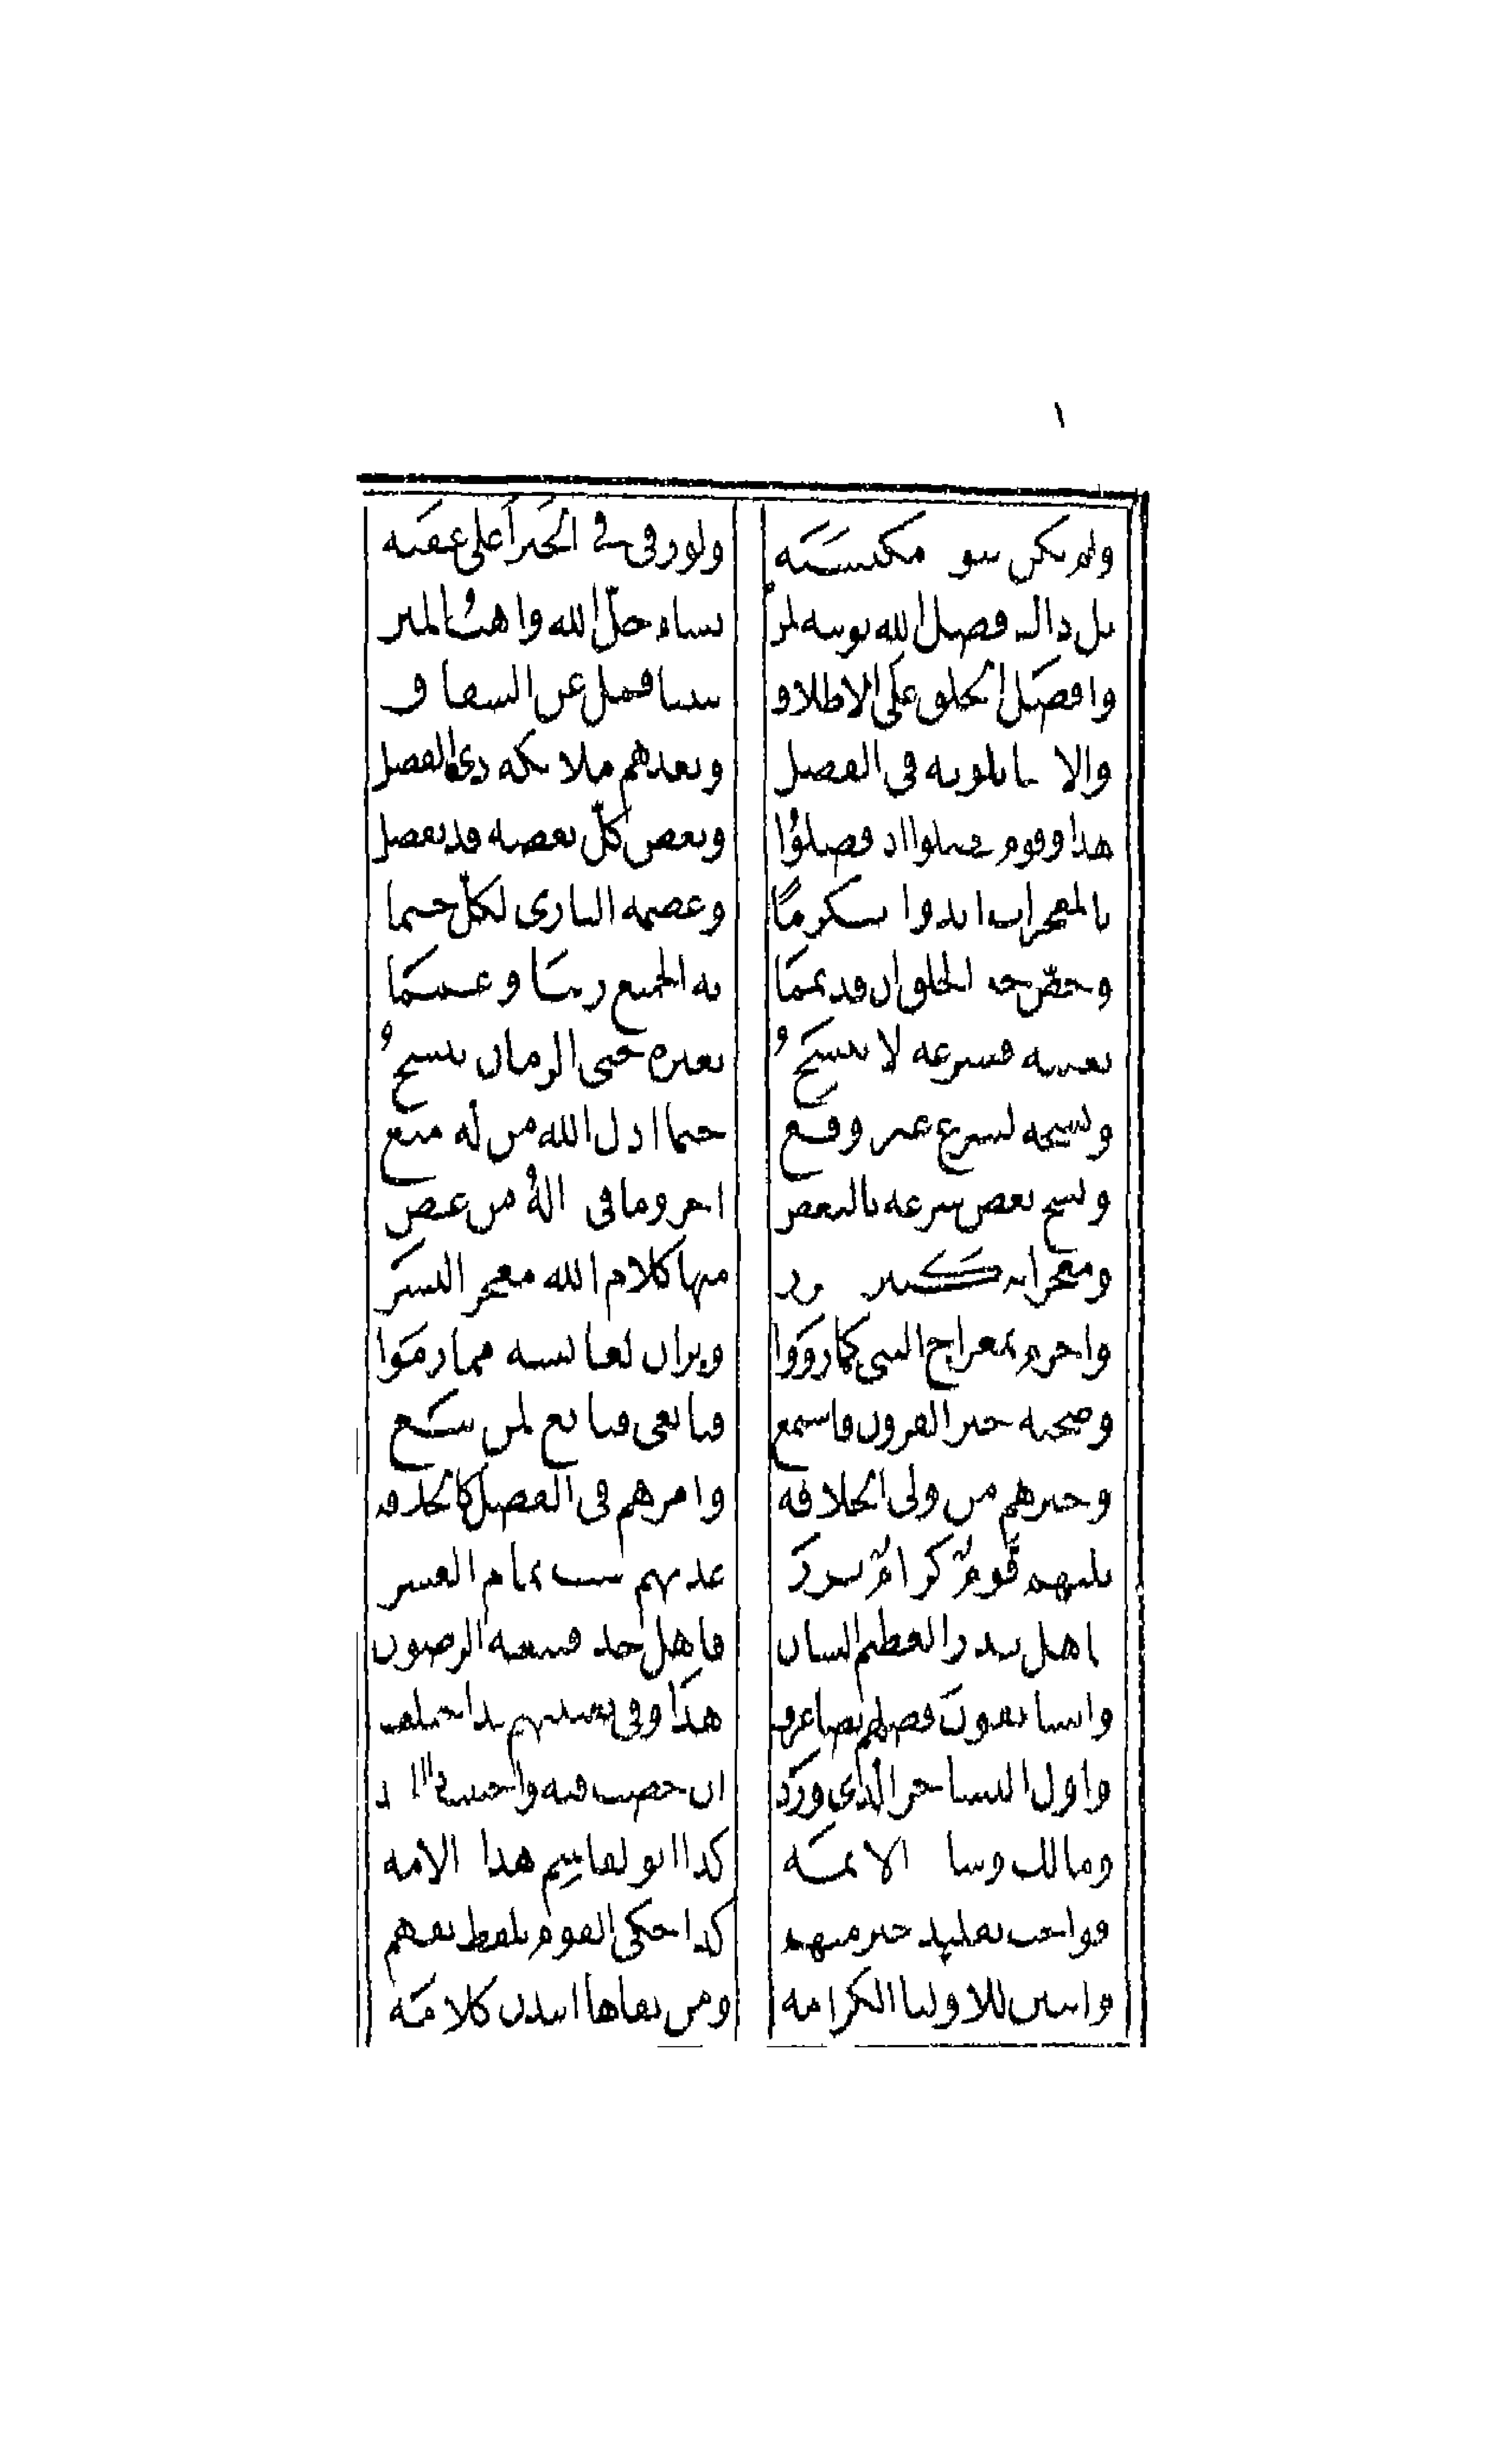 ١
ولم تكن نبوة مكتسبه ولو رقى في الخير أعلى عقبه
بل ذاك فضل الله يوتيه لمن يشاء جل الله واهب المنن
وافضل الخلق على الاطلاق نبينا فمل عن الشقاق
والانبيا يلونه في الفضل وبعدهم ملائكه ذي الفضل
هذا وقوم فصلوا اذ فضلوا وبعض كل بعضه قد يفضل
بالمعجزات ايدوا تكرما وعصمه الباري لكل حتما
وخص خير الخلق ان قد تمما به الجميع ربنا وعمما
بعثته فشرعه لا ينسخ بغيره حتى الزمان ينسخ
ونسخه لشرع غيره وقع حتما اذل الله من له منع
ونسخ بعض شرعه بالبعض اجز وما في ذا له من غض
ومعجزاته كثيره غرر منها كلام الله معجز البشر
واجزم بمعراج النبي كما رووا وبران لعائشه مما رموا
وصحبه خير القرون فاستمع فتابعي فتابع لمن تبع
وخيرهم من ولي الخلافه وامرهم في الفضل كالخلافه
يليهم قوم كرام برره عدتهم ست تمام العشره
فاهل بدر العظيم الشان فاهل احد فبيعه الرضوان
والسابقون فضلهم نصا عرف هذا وفي تعيينهم قد اختلف
واول التشاجر الذي ورد ان خضت فيه واجتنب داء الحسد
ومالك وسائر الائمه كذا ابو القاسم هداه الامه
فواجب تقليد حبر منهم كذا حكى القوم بلفظ يفهم
واثبتن للاوليا الكرامه ومن نفاها انبذن كلامه